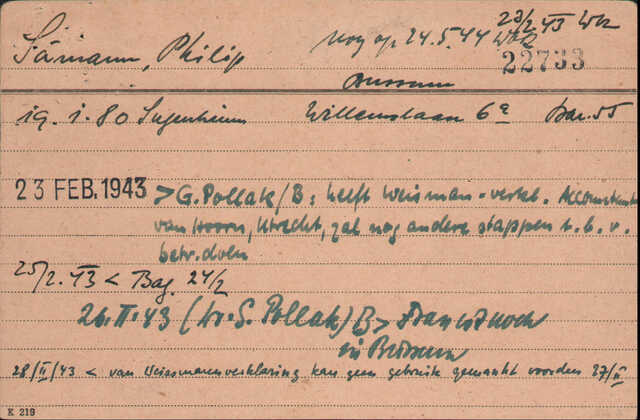 23/2 43 WK
Sämann, Philip nog op 24.5.44 WZK
22733
Bussum
19. 1. 80 Sugenheim Willemslaan 6a Bar. 55
23 FEB. 1943 > G. Pollak/B: heeft Weisman-verkl. Accountant
van Hoorn, Utrecht, zal nog andere stappen t. b. v.
betr. doen
25/2. 43 < Bag. 24/2
26. II. 43 (Dr. S. Pollak) B > noch
in Bussum
28/II/43 < van Weismannverklaring kan geen gebruik gemaakt worden 27/II
K 219